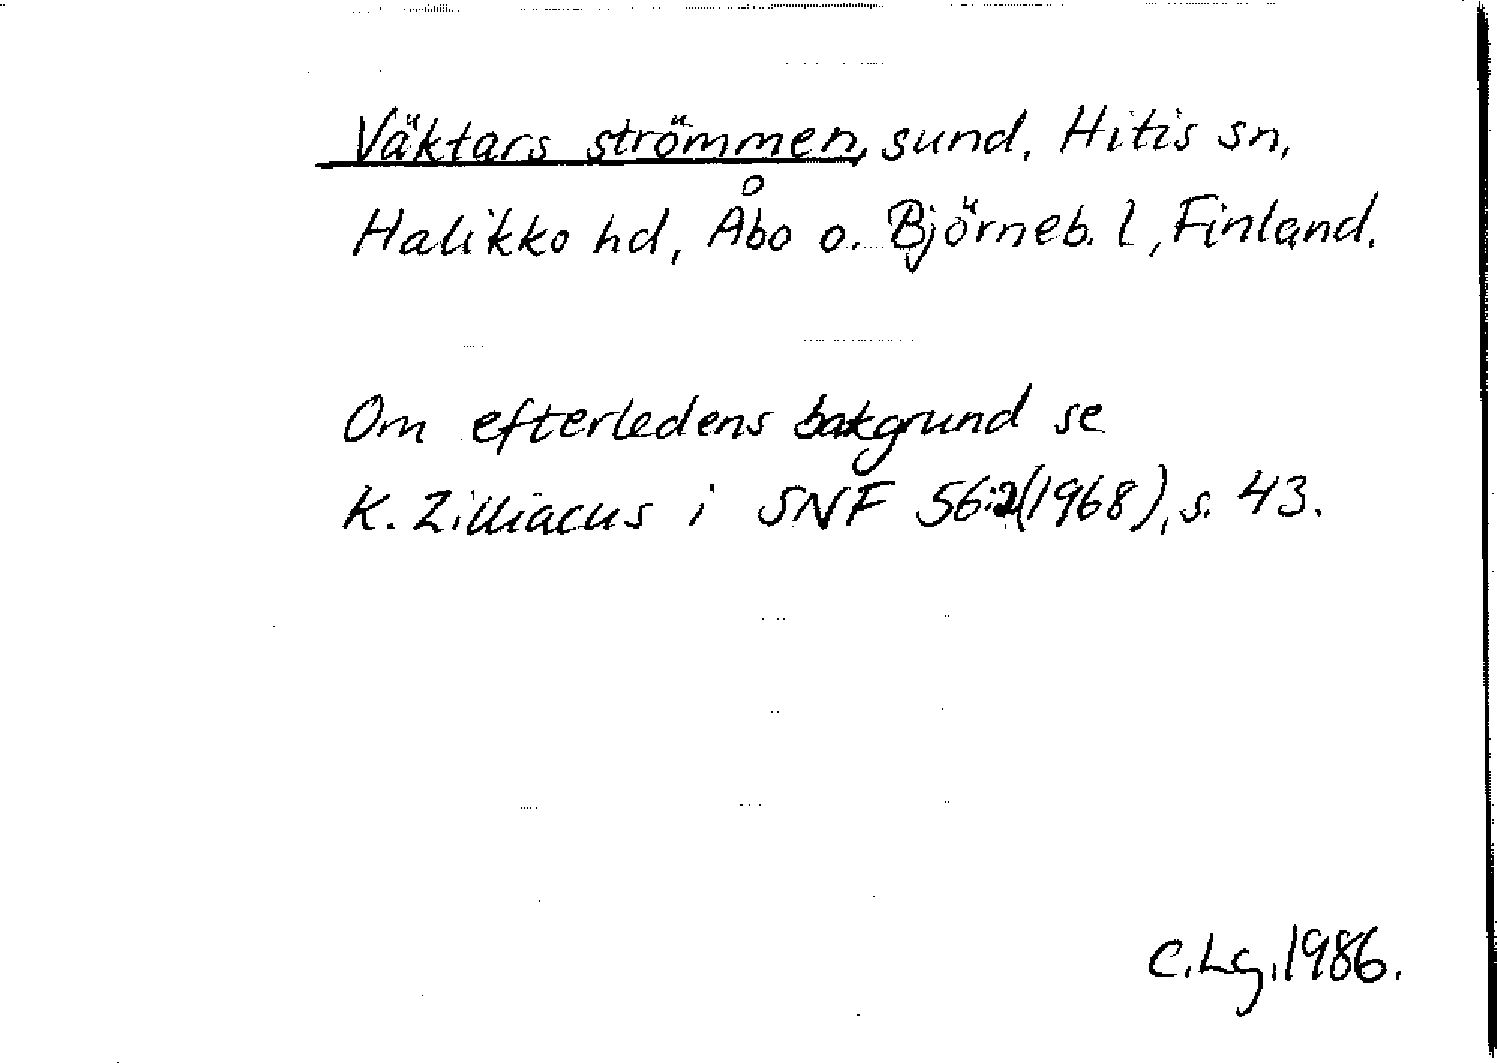 Väktars strömmen, sund. Hitis sn,
Halikko hd, Åbo o. Björneb. l, Finland.
Om efterledens bakgrund se
K. Zilliacus i SNF 56:2(1968), s. 43.
C.Lg.1986.